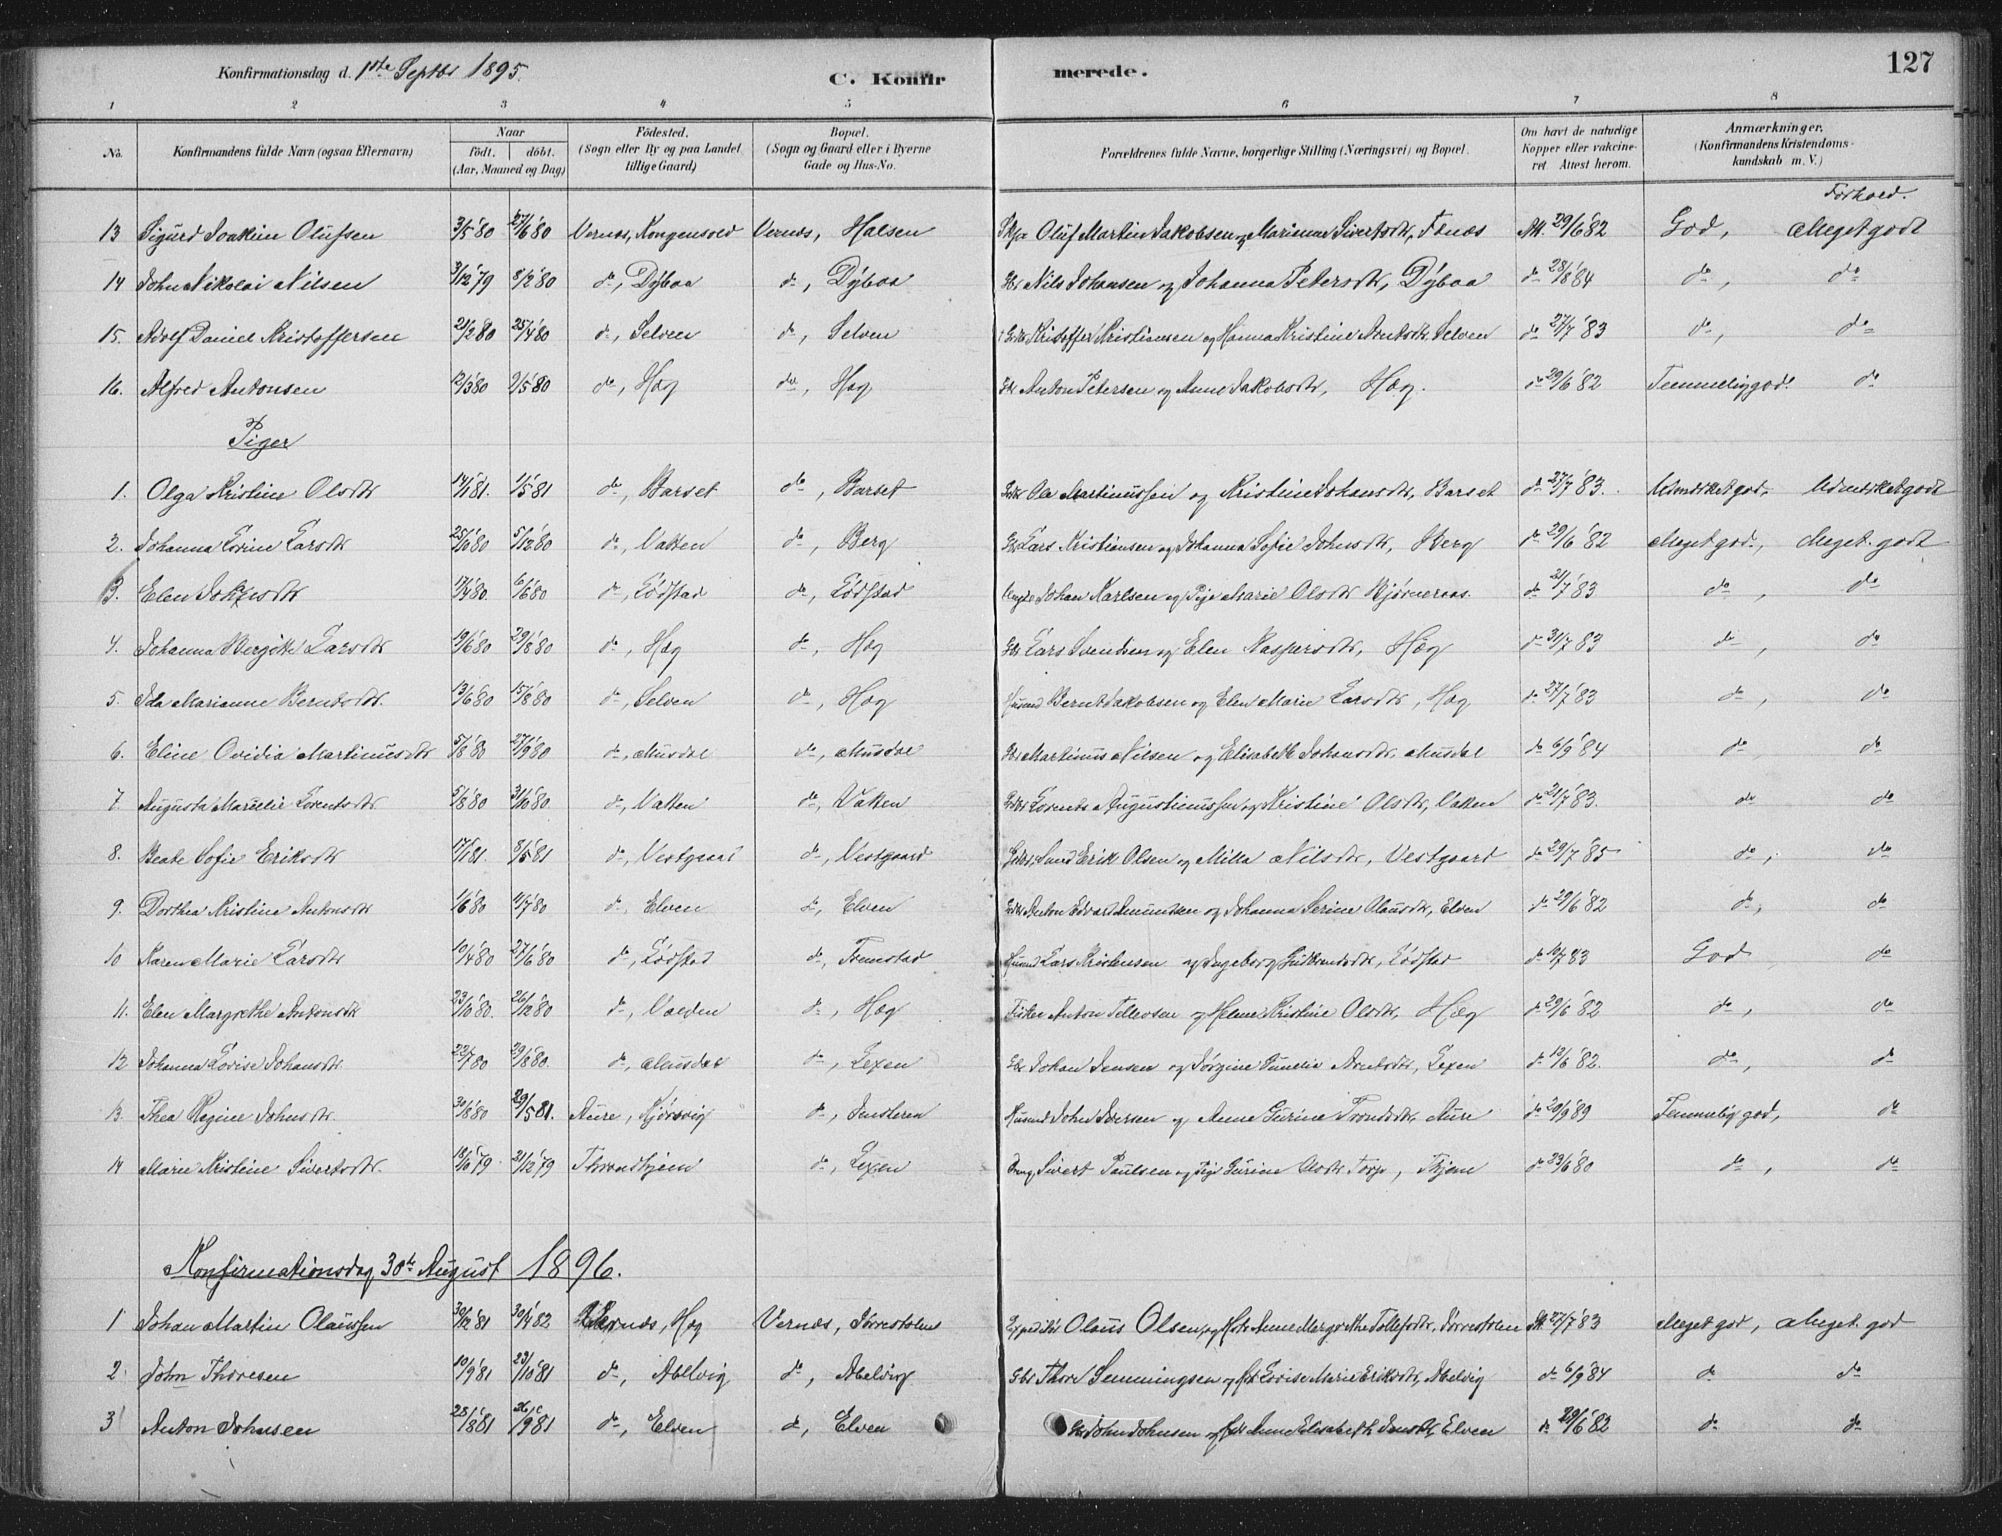 Konfirmationsdag d. 1ste Septbr 1895. C. Konfirmerede. 127
1 2 3 4 5 6 7 8
No. Konfirmandens fulde Navn (ogsaa Efternavn) Naar født. døbt. (Aar, Maaned og Dag) Fødested. (Sogn eller By og paa Landet tillige Gaard) Bopæl. (Sogn og Gaard eller i Byerne Gade og Hus-No. Forældrenes fulde Navne, borgerlige Stilling (Næringsvei) og Bopæl. Om havt de naturlige Kopper eller vakcineret. Attest herom. Anmærkninger. (Konfirmandens Kristendomskundskab m. V.)
Forhold.
13 Sigurd Joakim Olufsen 3/5 80 27/6 80 Vernæs, Kongensvold Vernæs, Halsen Oluf Martin Jakobsen og Marianne Sivertsdtr, Fånæs Att. 29/6 82 God, Meget godt
14 John Nikolai Nilsen 3/12 79 8/2 80 do, Dybaa do, Dybaa Gbr Nils Johansen og Johanna Petersdtr, Dybaa do 28/8 84 do, do
15. Adolf Daniel Kristoffersen 21/2 80 25/4 80 do, Selven do, Selven Kristoffer Kristiansen og Hanna Kristine Arntsdtr, Selven do 27/7 83 do, do
16. Alfred Antonsen 12/3 80 9/5 80 do, Hæg do, Hæg Gbr Anton Petersen og Anne Jakobsdtr, Hæg. do 29/6 82 Temmelig god. do
Piger
1. Olga Kristine Olsdtr 14/1 81. 1/5 81 do, Barset do, Barset Ole Martinussen og Kristine Johansdtr, Barset do 27/7 83. Udmerket god, Udmerket godt
2. Johanna Lovine Larsdtr 25/10 80 5/12 80 do, Vatten do, Berg Gbr Lars Kristiansen og Johanna Sofie Johnsdtr, Berg do 29/6 82 Meget god, Meget godt
3. Elen 17/4 80. 6/6 80 do, Lødstad do, Lødstad Johan Karlsen og Pige Marie Olsdtr do 21/7 83 do, do
4. Johanna Bergitte Larsdtr 19/6 80 29/8 80 do, Hæg do, Hæg Gbr Lars Svendsen og Elen Kaspersdtr, Hæg do 31/7 83 do, do
5. Ida Marianne Berntsdtr. 13/6 80 15/8 80 do, Selven do, Hæg Husmd Bernt Jakobsen og Elen Marie Larsdtr, Hæg do 27/7 83 do, do
6. Eline Ovidia Martinusdtr 5/8 80 27/9 80 do, Musdal do, Musdal Gbr Martinus Nilsen og Elisabeth Johansdtr, Musdal do 6/9 84 do do
7. Augusta Marselie Lorentsdtr 5/8 80 31/10 80. do, Vatten do, Vatten Lorents Augustinussen og Kristine Olsdtr, Vatten do 21/7 83. do do
8. Beate Sofie Eriksdtr 17/1 81. 8/5 81 do, Vestgaard do, Vestgaard Erik Olsen og Milla Nilsdtr, Vestgaard do 29/7 85 do, do
9. Dorthea Kristine Antonsdtr 1/6 80 11/7 80 do, Elven do, Elven Anton Edvard Amundsen og Johanna Serine Olausdtr, Elven do 29/6 82 do, do
10 Karen Marie Larsdtr 10/4 80 27/6 80 do, Lødstad do, Tremstad Husmd Lars Kristensen og Ingeborg Guldbrandsdtr, Lødstad do 10/7 83 God, do
11. Elen Margrethe Antonsdtr 23/10 80. 26/12 80 do, Valden do, Hæg Fisker Anton Tellevsen og Helene Kristine Olsdtr, Hæg do 29/6 82 do, do
12 Johanna Lovise Johansdtr. 22/7 80 29/8 80. do, Musdal do, Lexen Gbr Johan Jensen og Jørgine Pernelie Arntsdtr, Lexen do 13/6 82. do, do
13. Thea Regine Johnsdtr. 30/8 80 29/5 81. Aure, Kjørsvig do, Innsteren Husmd John Iversen og Anne Gurine Trondsdtr, Aure do 20/9 89 Temmelig god, do
14 Marie Kristine Sivertsdtr. 18/10 79 21/12 79 Throndhjem do, Lexen Sivert Paulsen og Pige Gurine Olsdtr Torp, Thjem do 23/6 80 do, do
Konfirmationsdag 30te August 1896.
1 Johan Martin Olaussen 30/12 81 30/4 82 Vernæs, Hæg Vernæs, Torrestolen Olaus Olsen og Anne Margrethe Tollefsdtr, Torrestolen Att. 27/7 83 Meget god, Meget god
2 John Thoresen 10/9 81 23/10 81 do, Mælvig do, Mælvig Gbr Thore Semmingsen og Lovise Marie Eriksdtr, Mælvig do 6/9 84 do do
3 Anton Johnsen 28/8 81 9 81 do, Elven do, Elven Gbr John Johnsen og Anne Elisabeth Jensdtr, Elven do 29/6 82 do do